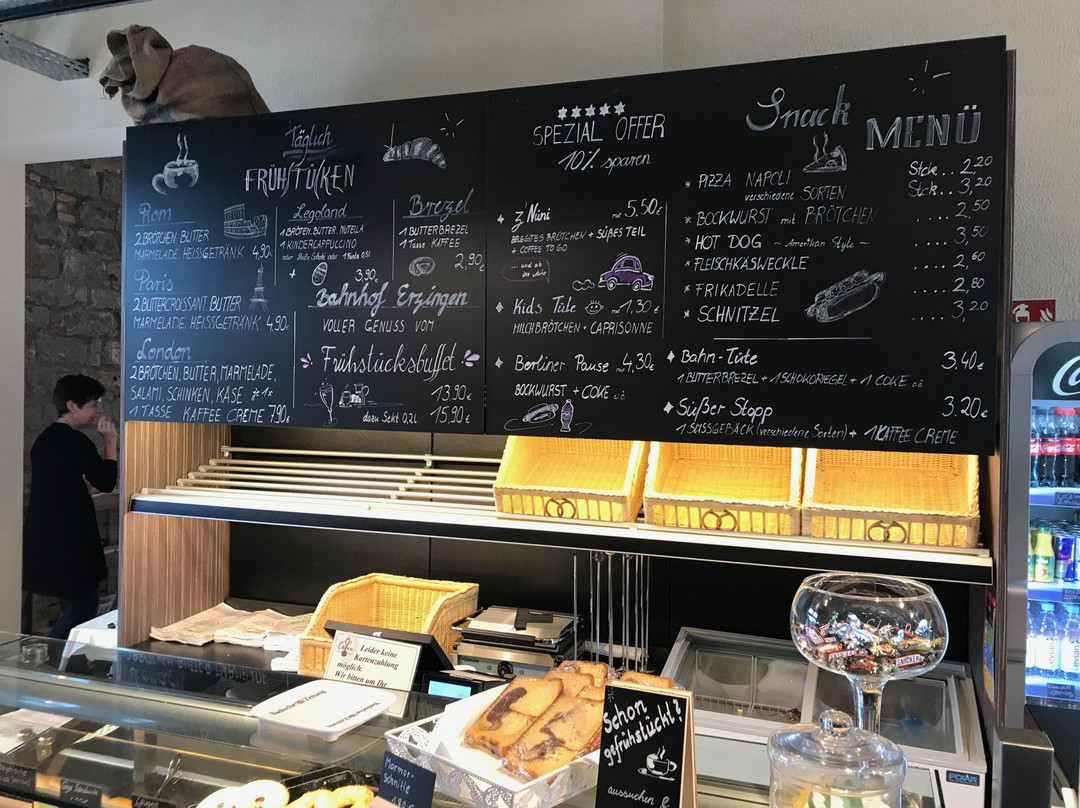 Täglich
FRÜHSTÜCKEN
Rom
2 BRÖTCHEN BUTTER
MARMELADE. HEISSGETRÄNK 4,90€
Paris
2 BUTTERCROISSANT. BUTTER
MARMELADE. HEISSGETRÄNK 4,90€
London
2 BRÖTCHEN, BUTTER, MARMELADE,
SALAMI, SCHINKEN, KÄSE je 1x
1 TASSE KAFFEE CREME 7,90€
Legoland
1 BRÖTEN, BUTTER, NUTELLA
1 KINDERCAPPUCCINO
oder Heiße Schoki oder 1 Fanta 0,5l
+ 3,90€
Brezel
1 BUTTERBREZEL
1 Tasse KAFFEE
2,90€
Bahnhof Erzingen
VOLLER GENUSS VOM
Frühstücksbuffet
13,90€
dazu Sekt 0,2l 15,90€
SPEZIAL OFFER
10% sparen
z'Nüni nur 5,50€
BELEGTES BRÖTCHEN + SÜßES TEIL
+ COFFEE TO GO
... und ab
ins Auto
Kids Tüte nur 1,30€
MILCHBRÖTCHEN + CAPRISONNE
Berliner Pause nur 4,30€
BOCKWURST + COKE 0,2
Snack MENÜ
* PIZZA NAPOLI Stck.. 2,20
verschiedene SORTEN Stck.. 3,20
* BOCKWURST mit BRÖTCHEN .... 2,50
* HOT DOG ~ Amerikan Style ~ .... 3,50
* FLEISCHKÄSWECKLE .... 2,60
* FRIKADELLE .... 2,80
* SCHNITZEL .... 3,20
Bahn-Tüte 3,40€
1 BUTTERBREZEL + 1 SCHOKORIEGEL + 1 COKE 0,2
Süßer Stopp 3,20€
1 SÜSSGEBÄCK (verschiedene Sorten) + 1 KAFFEE CREME
Leider keine
Kartenzahlung
möglich.
Wir bitten um Ihr
Schon
gefrühstückt?
aussuchen &
Marmor-
Schnitte
SNICKERS
POLAR